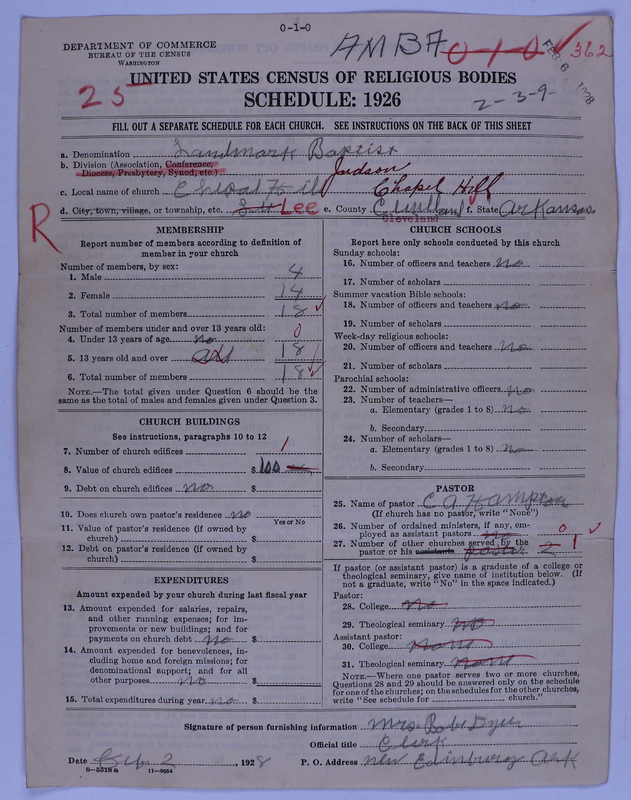 0-1-0
DEPARTMENT OF COMMERCE
BUREAU OF THE CENSUS
WASHINGTON
AMBA 0-1-0 362
FEB 6 1928
25
UNITED STATES CENSUS OF RELIGIOUS BODIES
SCHEDULE: 1926
2-3-9-
FILL OUT A SEPARATE SCHEDULE FOR EACH CHURCH. SEE INSTRUCTIONS ON THE BACK OF THIS SHEET
a. Denomination Landmark Baptist
b. Division (Association, Conference, Diocese, Presbytery, Synod, etc.) Judson
c. Local name of church Chapel Hill Chapel Hill
R
d. City, town, village, or township, etc. Lee e. County Cleveland f. State Arkansas
MEMBERSHIP
Report number of members according to definition of
member in your church
Number of members, by sex:
1. Male 4
2. Female 14
3. Total number of members 18
Number of members under and over 13 years old:
4. Under 13 years of age no 0
5. 13 years old and over all 18
6. Total number of members 18
NOTE.—The total given under Question 6 should be the
same as the total of males and females given under Question 3.
CHURCH BUILDINGS
See instructions, paragraphs 10 to 12
7. Number of church edifices 1
8. Value of church edifices $ 100
9. Debt on church edifices no $
10. Does church own pastor's residence no
Yes or No
11. Value of pastor's residence (if owned by
church) $
12. Debt on pastor's residence (if owned by
church) $
EXPENDITURES
Amount expended by your church during last fiscal year
13. Amount expended for salaries, repairs,
and other running expenses; for im-
provements or new buildings; and for
payments on church debt no $
14. Amount expended for benevolences, in-
cluding home and foreign missions; for
denominational support; and for all
other purposes no $
15. Total expenditures during year no $
CHURCH SCHOOLS
Report here only schools conducted by this church
Sunday schools:
16. Number of officers and teachers no
17. Number of scholars
Summer vacation Bible schools:
18. Number of officers and teachers no
19. Number of scholars
Week-day religious schools:
20. Number of officers and teachers no
21. Number of scholars
Parochial schools:
22. Number of administrative officers no
23. Number of teachers—
a. Elementary (grades 1 to 8) no
b. Secondary
24. Number of scholars—
a. Elementary (grades 1 to 8) no
b. Secondary
PASTOR
25. Name of pastor C A Hampton
(If church has no pastor, write "None")
26. Number of ordained ministers, if any, em-
ployed as assistant pastors no 0
27. Number of other churches served by the
pastor or his assistants pastor 2 1
If pastor (or assistant pastor) is a graduate of a college or
theological seminary, give name of institution below. (If
not a graduate, write "No" in the space indicated.)
Pastor:
28. College no
29. Theological seminary no
Assistant pastor:
30. College none
31. Theological seminary none
NOTE.—Where one pastor serves two or more churches,
Questions 28 and 29 should be answered only on the schedule
for one of the churches; on the schedules for the other churches,
write "See schedule for church."
Signature of person furnishing information Mrs Bob Dyer
Official title Clerk
Date 2, 1928 P. O. Address New Edinburg Ark
8-5518a 11-9054